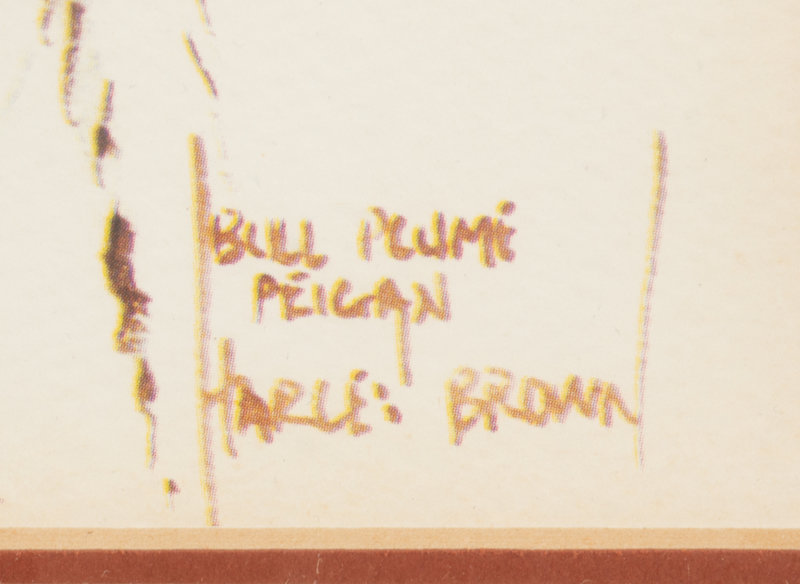 BULL PLUME
PEIGAN
HARLEY BROWN